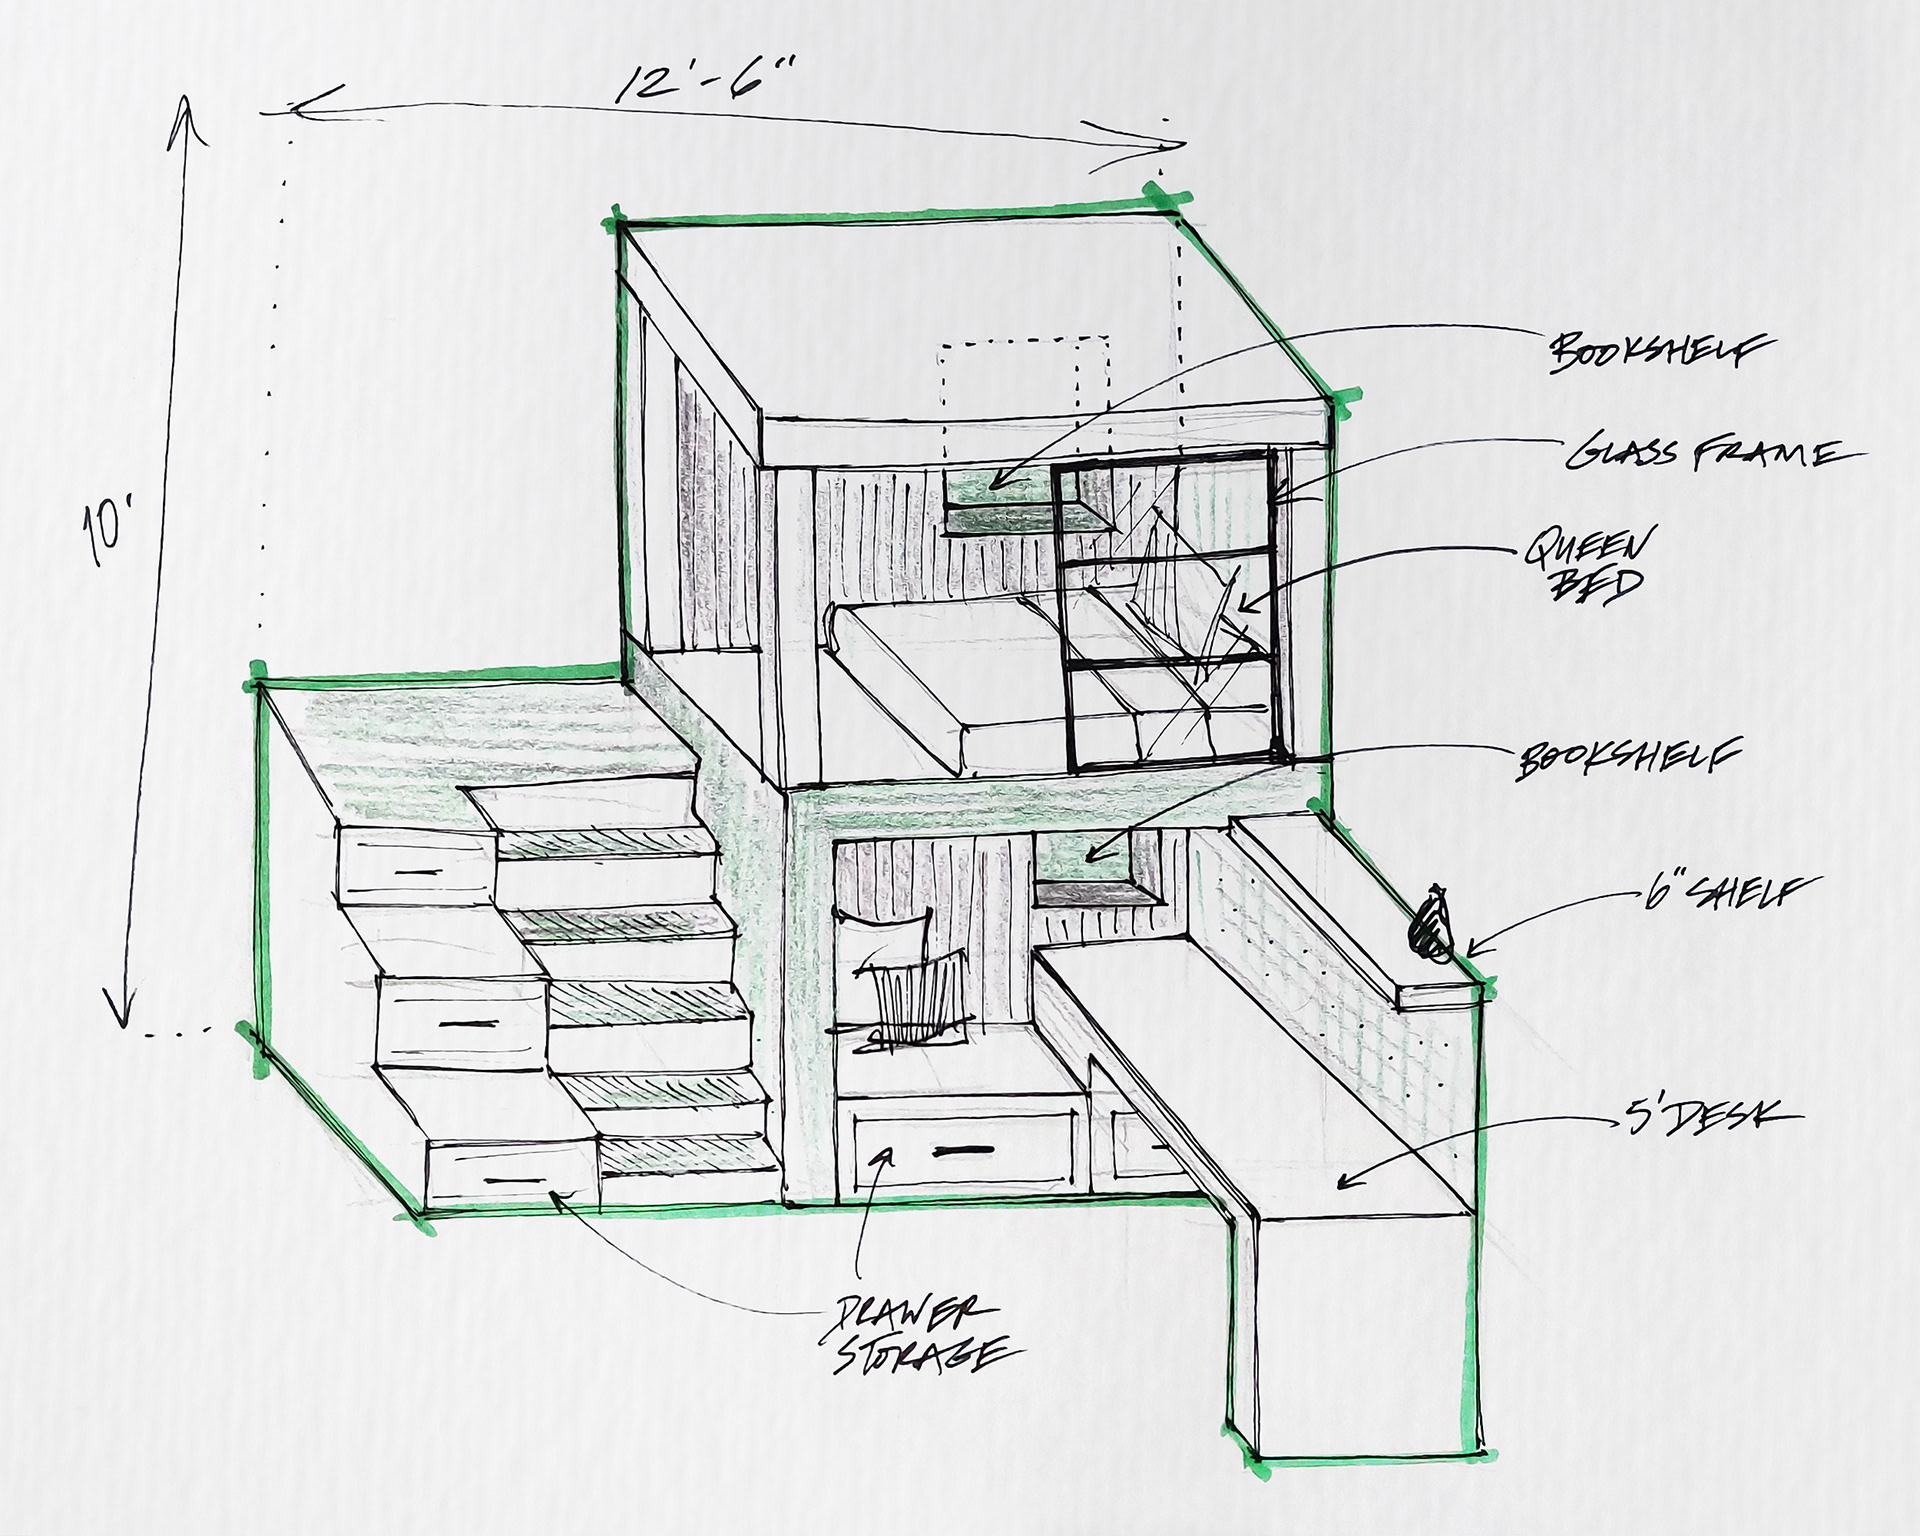 12'-6"
10'
BOOKSHELF
GLASS FRAME
QUEEN
BED
BOOKSHELF
6" SHELF
5' DESK
DRAWER
STORAGE